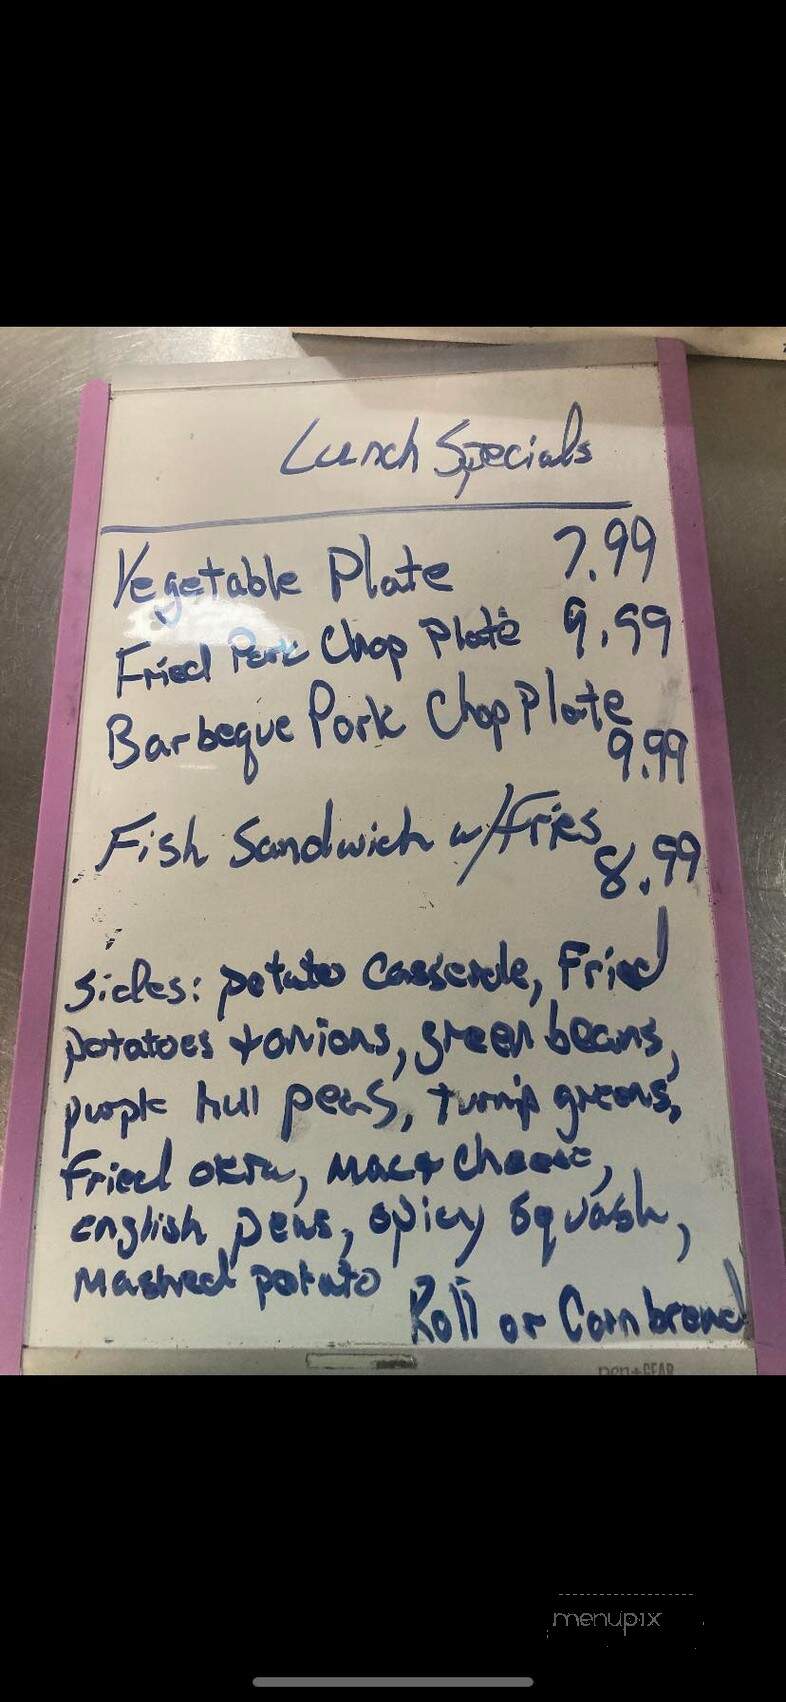 Lunch Specials
Vegetable Plate 7.99
Fried Pork Chop Plate 9.99
Barbeque Pork Chop Plate
9.99
Fish Sandwich w/Fries
8.99
Sides: potato Casserole, Fried
potatoes + onions, green beans,
purple hull peas, turnip greens,
Fried okra, mac + cheese,
english peas, spicy squash,
Mashed potato
Roll or Cornbread
pen+GEAR
menupix